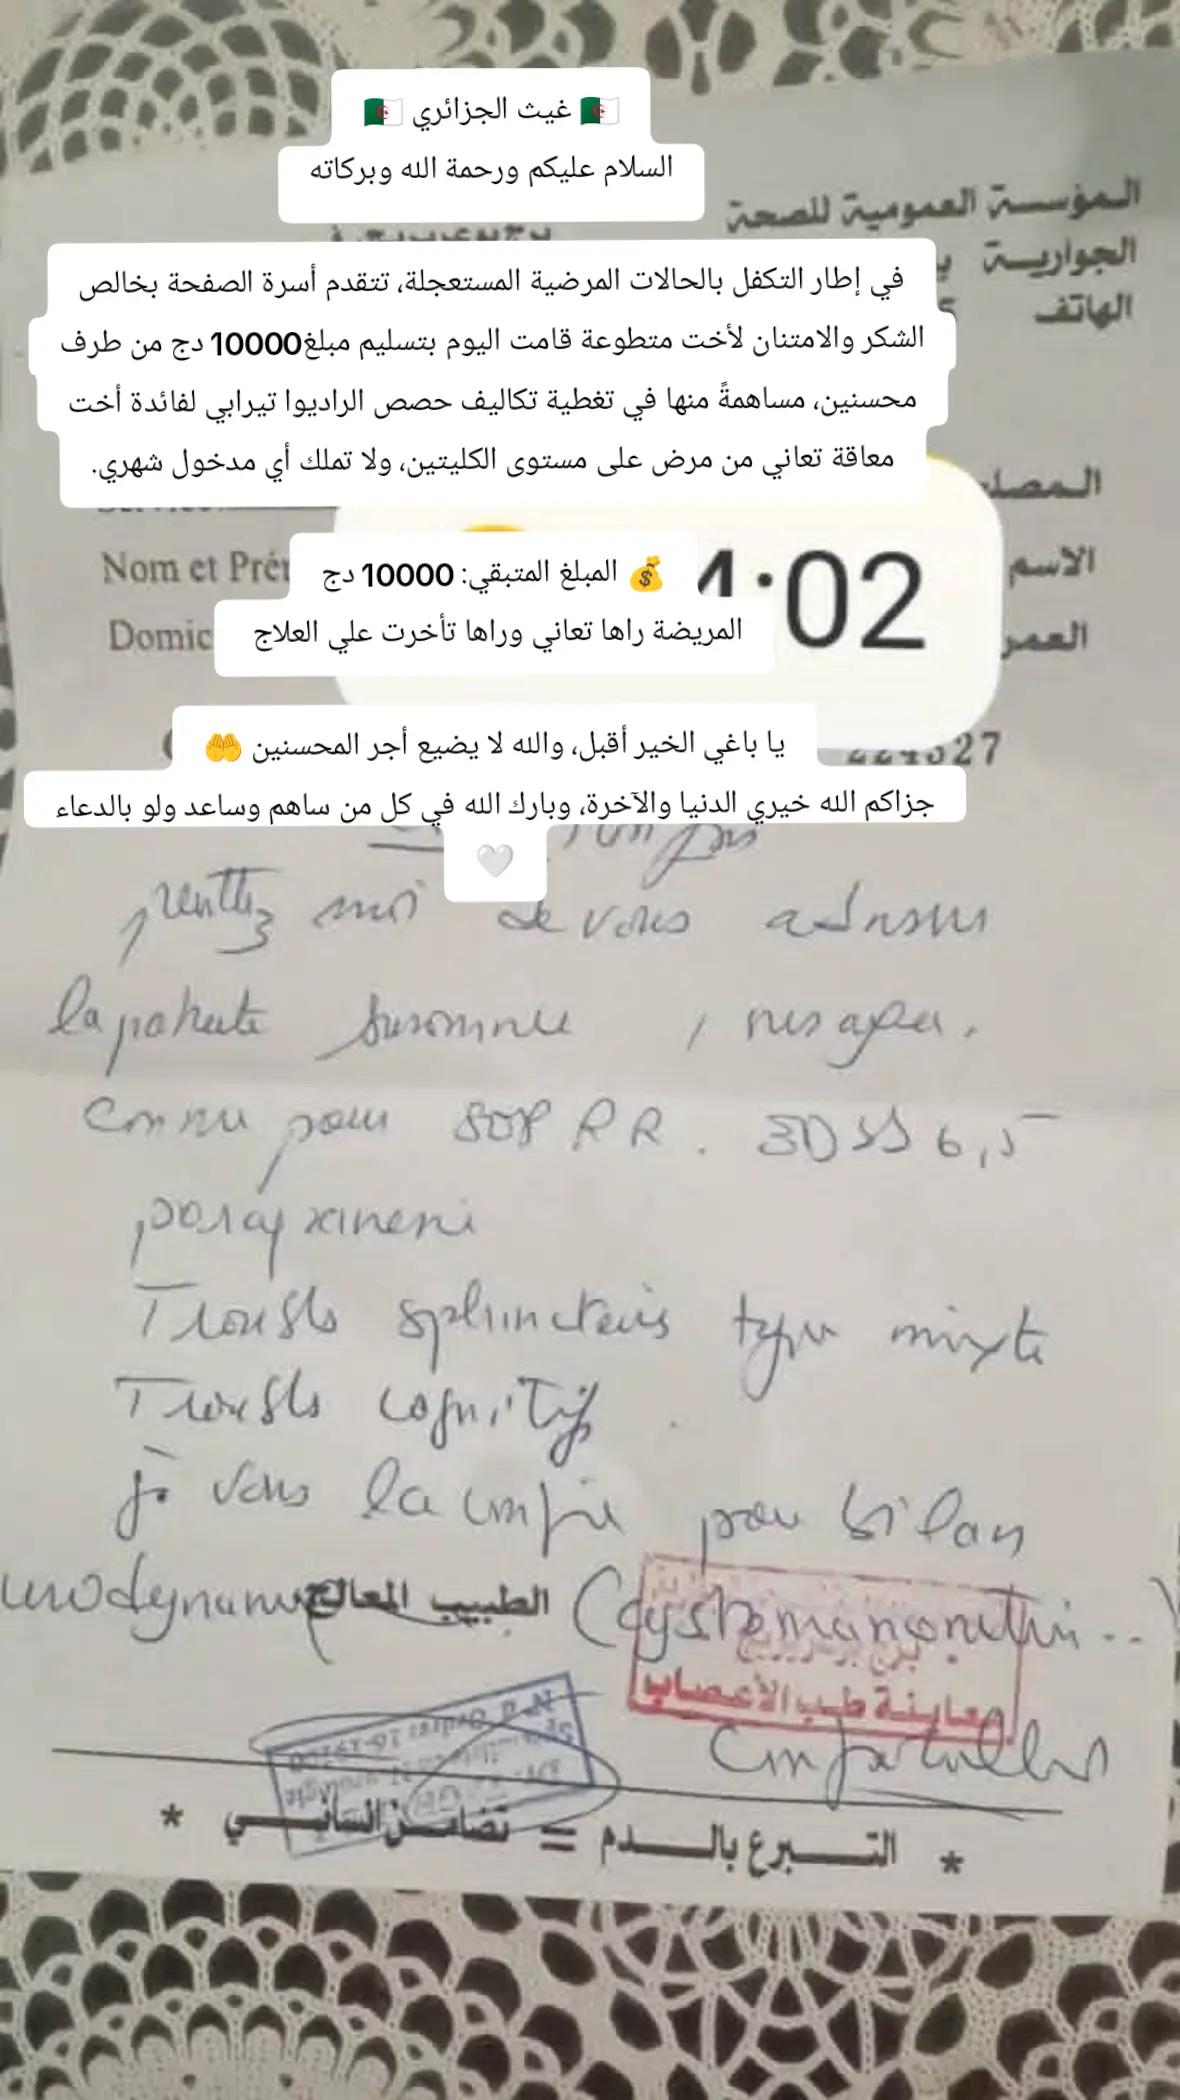 🇩🇿 غيث الجزائري 🇩🇿
السلام عليكم ورحمة الله وبركاته
المؤسسة العمومية للصحة
الجوارية
الهاتف
في إطار التكفل بالحالات المرضية المستعجلة، تتقدم أسرة الصفحة بخالص
الشكر والامتنان لأخت متطوعة قامت اليوم بتسليم مبلغ10000 دج من طرف
محسنين، مساهمةً منها في تغطية تكاليف حصص الراديوا تيرابي لفائدة أخت
معاقة تعاني من مرض على مستوى الكليتين، ولا تملك أي مدخول شهري.
Nom et Prén
الاسم
:02
💰 المبلغ المتبقي: 10000 دج
Domic
العمر
المريضة راها تعاني وراها تأخرت علي العلاج
يا باغي الخير أقبل، والله لا يضيع أجر المحسنين 🤲
جزاكم الله خيري الدنيا والآخرة، وبارك الله في كل من ساهم وساعد ولو بالدعاء
🤍
moi de vous adresser
la patiente susnommée
connue pour SEP RR. EDSS 6,5
Troubles sphinctériens type mixte
Troubles cognitifs
je vous la confie pour bilan
urodynamique (cystomanométrie...
الطبيب المعالج
معاينة طب الأعصاب
Confraternellement
* التبرع بالدم = تضامن إنساني *